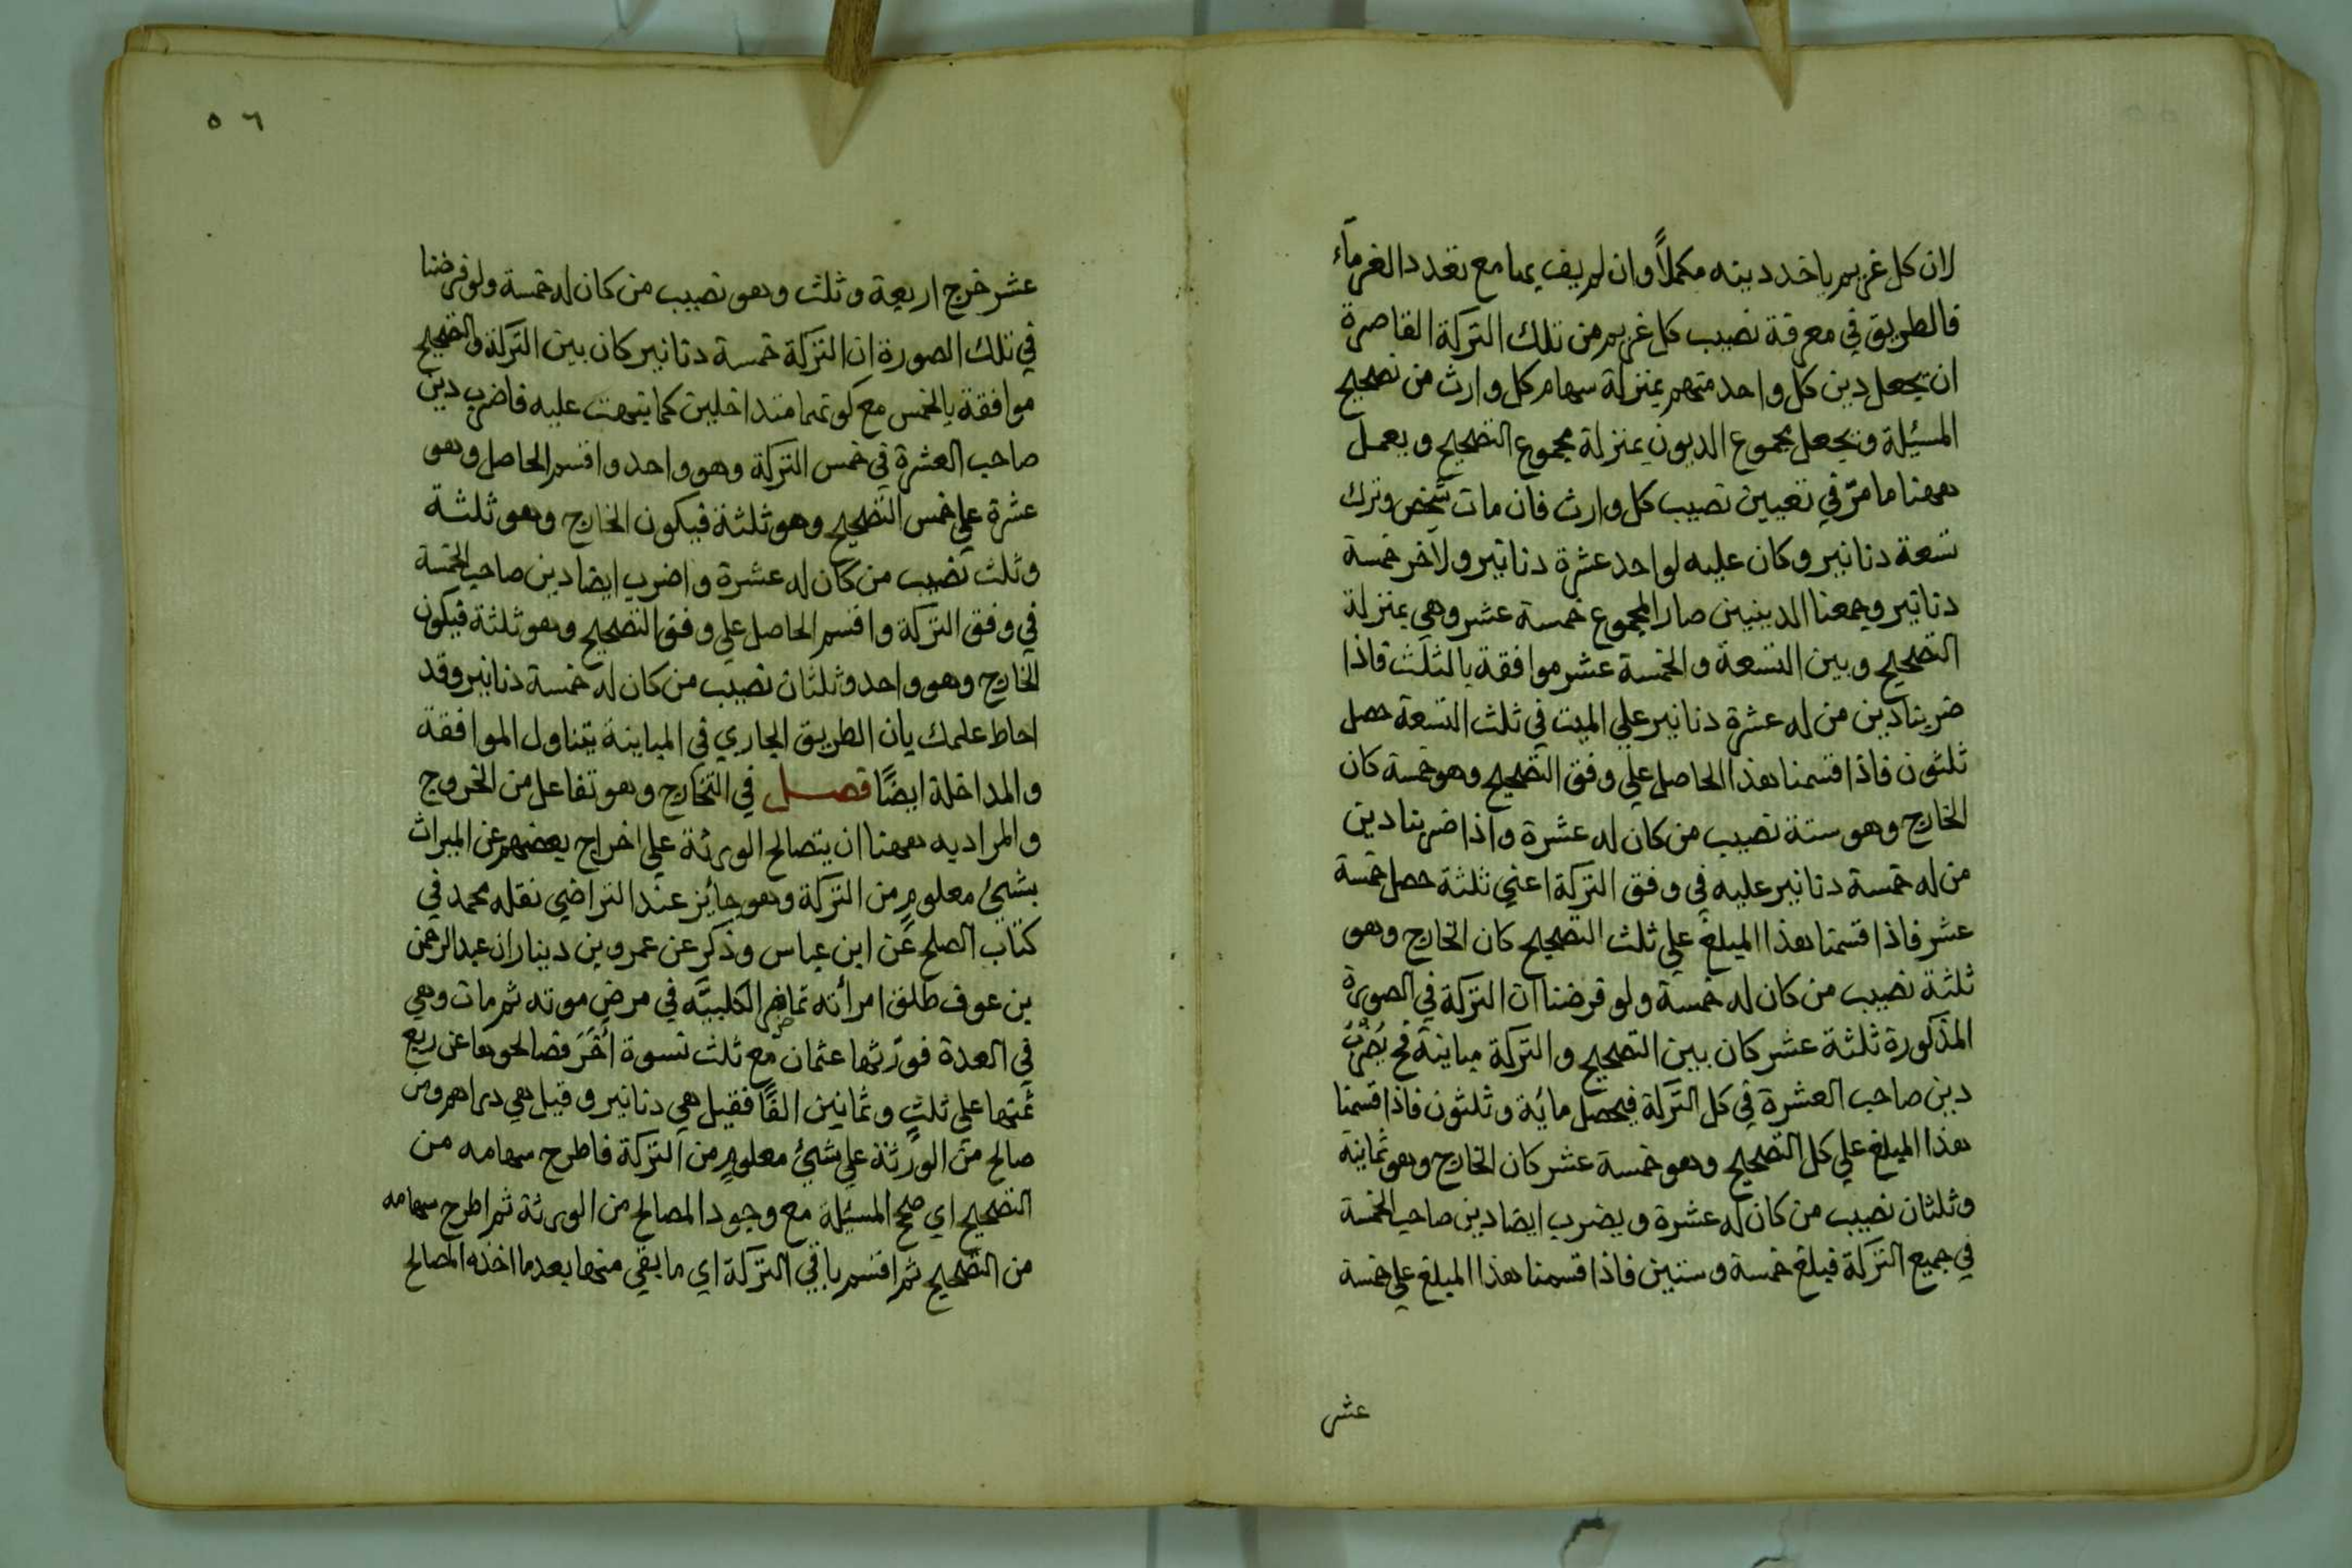 لان كل غريم ياخد دينه مكملاً وان لم يف بها مع تعدد الغرمآء
فالطريق في معرفة نصيب كل غريم من تلك التركة القاصرة
ان يجعل دين كل واحد منهم بمنزلة سهام كل وارث من تصحيح
المسئلة ويجعل مجموع الديون بمنزلة مجموع التصحيح ويعمل
ههنا ما مرّ في تعيين نصيب كل وارث فان مات شخص وترك
تسعة دنانير وكان عليه لواحد عشرة دنانير ولآخر خمسة
دنانير وجمعنا الدينين صار المجموع خمسة عشر وهي بمنزلة
التصحيح وبين التسعة والخمسة عشر موافقة بالثلث فاذا
ضربنا دين من له عشرة دنانير علي الميت في ثلث التسعة حصل
ثلثون فاذا قسمنا هذا الحاصل علي وفق التصحيح وهو خمسة كان
الخارج وهو ستة نصيب من كان له عشرة واذا ضربنا دين
من له خمسة دنانير عليه في وفق التركة اعني ثلثة حصل خمسة
عشر فاذا قسمنا هذا المبلغ علي ثلث التصحيح كان الخارج وهو
ثلثة نصيب من كان له خمسة ولو فرضنا ان التركة في الصورة
المذكورة ثلثة عشر كان بين التصحيح والتركة مباينة فح يُضْرَبُ
دين صاحب العشرة في كل التركة فيحصل مائة وثلثون فاذا قسمنا
هذا المبلغ علي كل التصحيح وهو خمسة عشر كان الخارج وهو ثمانية
وثلثان نصيب من كان له عشرة ويضرب ايضا دين صاحب الخمسة
في جميع التركة فيبلغ خمسة وستين فاذا قسمنا هذا المبلغ علي خمسة
عشر
٥٦
عشر خرج اربعة وثلث وهو نصيب من كان له خمسة ولو فرضنا
في تلك الصورة ان التركة خمسة دنانير كان بين التركة والتصحيح
موافقة بالخمس مع كونهما متداخلين كما نبهت عليه فاضرب دين
صاحب العشرة في خمس التركة وهو واحد واقسم الحاصل وهو
عشرة علي خمس التصحيح وهو ثلثة فيكون الخارج وهو ثلثة
وثلث نصيب من كان له عشرة واضرب ايضا دين صاحب الخمسة
في وفق التركة واقسم الحاصل علي وفق التصحيح وهو ثلثة فيكون
الخارج وهو واحد وثلثان نصيب من كان له خمسة دنانير وقد
احاط علمك بان الطريق الجاري في المباينة يتناول الموافقة
والمداخلة ايضًا فصل في التخارج وهو تفاعل من الخروج
والمراد به ههنا ان يتصالح الورثة علي اخراج بعضهم عن الميراث
بشيئ معلوم من التركة وهو جائز عند التراضي نقله محمد في
كتاب الصلح عن ابن عباس وذكر عن عمرو بن دينار ان عبد الرحمن
بن عوف طلق امرأته تماضر الكلبيّه في مرض موته ثم مات وهي
في العدة فورّثها عثمان مع ثلث نسوة اُخَرَ فصالحوها عن ربع
ثمنها علي ثلثٍ وثمانين الفًا فقيل هي دنانير وقيل هي دراهم ومن
صالح من الورثة علي شيئ معلومٍ من التركة فاطرح سهامه من
التصحيح اي صحح المسئلة مع وجود المصالح من الورثة ثم اطرح سهامه
من التصحيح ثم اقسم باقي التركة اي ما بقي منها بعد ما اخذه المصالح